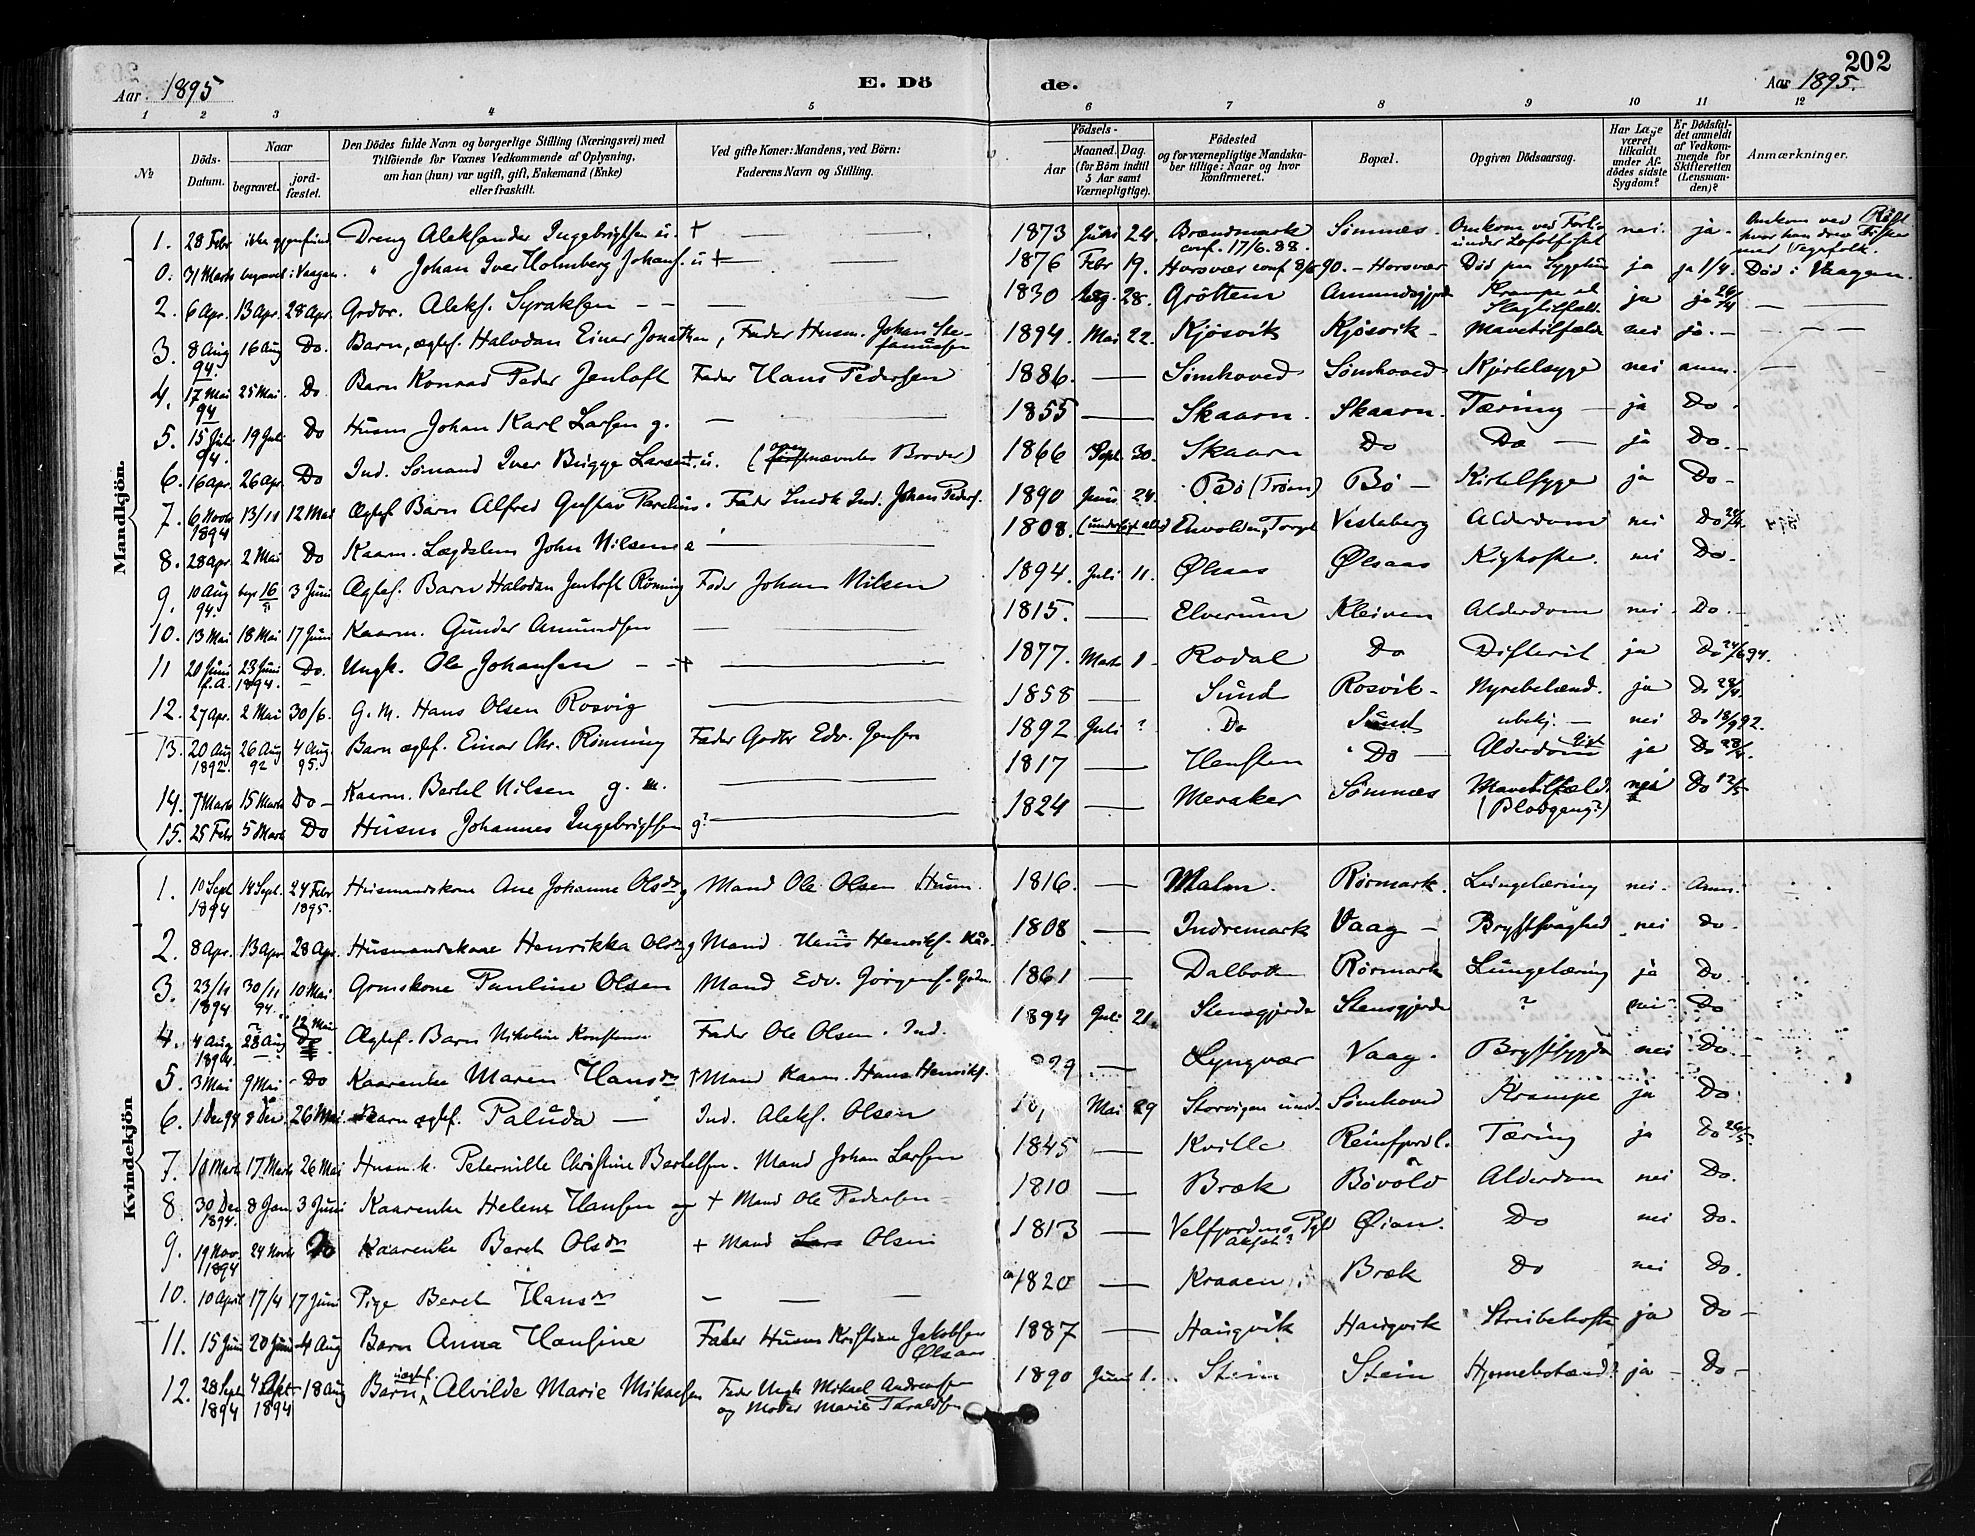 202
Aar 1895
E. Dö
de.
Aar 1895.
1 2 3 4 5 6 7 8 9 10 11 12
№
Döds-Datum.
Naar
begravet.
jord-fæstet.
Den Dödes fulde Navn og borgerlige Stilling (Næringsvei) med
Tilföiende for Voxnes Vedkommende af Oplysning,
om han (hun) var ugift, gift, Enkemand (Enke)
eller fraskilt.
Ved gifte Koner: Mandens, ved Börn:
Faderens Navn og Stilling.
Födsels-
Aar
Maaned. Dag.
(for Börn indtil
5 Aar samt
Værnepligtige).
Födested
og for værnepligtige Mandska-
ber tillige: Naar og hvor
konfirmeret.
Bopæl.
Opgiven Dödsaarsag.
Har Læge
været
tilkaldt
under Af-
dödes sidste
Sygdom?
Er Dödsfal-
det anmeldt
af Vedkom-
mende for
Skifteretten
(Lensman-
den)?
Anmærkninger.
Mandkjön.
1. 28 Febr ikke gjenfund. Dreng Aleksander Ingebrigtsen u. + — — 1873 Juni 24. Brændmark conf. 17/6.88. Sömnæs. Omkom ved Forlis under Lofotfisket nei. ja. Omkom ved Röst hvor han drev Fiske med Vegafolk.
0. 31 Marts begravet i Vaagen. " Johan Iver Holmberg Johans. u + — 1876 Febr 19. Horsvær conf 8/6 90. — Horsvær Död paa Sygehus ja ja 1/4. Död i Vaagen.
2. 6 Apr. 13 Apr. 28 Apr. Grdbr. Aleks. Syraksen — — 1830 Aug. 28. Gröttem Amundsgjerde Krampe el Slagtilfald. ja ja 26/4 —
3. 8 Aug 94. 16 Aug Do. Barn, ægtef. Halvdan Einar Jonathan, Fader Husm. Johan Stefanussen 1894. Mai 22. Kjösvik Kjösvik — Mavetilfælde nei ja. —
4. 17 Mai 94 25 Mai. Do Barn Konrad Peder Jentoft Fader Hans Pedersen 1886. — Sömhoved Sömhoved Kjertelsyge nei anm. —
5. 15 Juli 94. 19 Juli Do Husm Johan Karl Larsen g. — 1855 — Skaarn. Skaarn. Tæring — ja Do.
6. 16 Apr. 26 Apr. Do Ind. Sömand Iver Bugge Larsen +. u. (ovennævntes Broder) 1866 Sept. 30. Skaarn Do Do — ja Do. —
7. 6 Novbr 1894 13/11 12 Mai Ægtef. Barn Alfred Gustav Parelius. Fader Smedk Ind. Johan Peders. 1890 Juni 24. Bö (Tröm) Bö — Kirtelsyge ja Do —
8. 28 Apr. 2 Mai Do Kaarm. Lægdslem John Nilsen e — 1808. Torget Vestaberg Alderdom nei Do 29/4.
9. 10 Aug 94. begr 16 3 Juni Ægtef. Barn Halvdan Jentoft Rönning Fader Johan Nilsen 1894. Juli 11. Ølsaas Ølsaas Kighoste. nei Do.
10. 13 Mai 18 Mai 17 Juni Kaarm. Gunder Amundsen — — 1815. — Elverum Kleiven Alderdom nei. Do. —
11 20 Juni f.A. 23 Juni 1894. Do. Ungk. Ole Johansen — + — 1877. Marts 1 — Rodal Do Difterit ja Do 24/6 94.
12. 27 Apr. 2 Mai 30/6. G. M. Hans Olsen Rosvig — 1858 — Sund Rosvik — Nyrebetænd. ja Do 28/4.
13. 20 Aug 1892. 26 Aug 92 4 Aug 95. Barn ægtef. Einar Chr. Rönning Fader Gadbr Edv. Jensen 1892 Juli ? Do Sund ubekj. — nei Do 18/9 92.
14. 7 Marts 15 Marts Do — Kaarm. Bertel Nilsen g. m. — 1817 — Hensten Do — Alderdom Gigt ja Do
15. 25 Febr 5 Mart Do Husm Johannes Ingebrigtsen g? — 1824 — Meraker Sömnæs Mavetilfælde (Blodgang?) nei Do 12/5
Kvindekjön
1. 10 Sept 1894 14 Sept. 24 Febr 1895. Husmandskone Ane Johanne Olsdr g Mand Ole Olsen Husm. 1816. — Malm. Rörmark. Lungetæring nei. Anm.
2. 8 Apr. 13 Apr 28 Apr. Husmandskone Henrikka Olsdr g Mand Hans Henriks. 1808 — Indremark Vaag — Brystsvaghed nei Do.
3. 23/11 1894 30/11 94. 10 Mai. Grmskone Pauline Olsen Mand Edv. Jörgens. 1861 — Dalbotn Rörmark Lungetæring ja Do.
4. 4 Aug 1894. 28 Aug 12 Mai Do Ægtef. Barn Nikoline Konstanse Fader Ole Olsen. Ind. 1894 Juli 21. Stensgjerde Stensgjerde ? nei Do
5. 3 Mai 9 Mai — Do Kaarenke Maren Hansdr + Mand Kaarm. Hans Henriks. 29 — Lyngvær Vaag. Brystsygdom nei Do. —
6. 1 Dec 94 8 Dec. 26 Mai. Barn ægtef. Paluda — Ind. Aleks. Olsen Mai 29 Storvigen Sömhoved Krampe ja Do.
7. 10 Marts 17 Marts 26 Mai Husm. k. Peternille Christine Bertelsen. Mand Johan Larsen 1845 — Kville Reinfjord. Tæring ja Do 26/5.
8. 30 Dec 1894. 8 Jan 3 Juni Kaarenke Helene Hansen + Mand Ole Pedersen 1810 — Bræk Bövold Alderdom nei Do.
9. 19 Nov. 1894 24 Novbr Do Kaarenke Beret Olsdr + Mand Lars Olsen 1813 — Velfjordens Pgf Øian. Do nei Do.
10. 10 April 17/4 17 Juni Pige Beret Hansdr — — — 1820 — Kraaen Bræk Do nei Do.
11. 15 Juni 20 Juni 4 Aug Barn Anna Hansine Fader Husm Kristian Jakobsen Ølsaas 1887 — Haugvik Haugvik Strubehoste ja Do —
12. 28 Sept 1894 4 Okt 1894 18 Aug Barn uægtef. Alvilde Marie Mikaelsen Fader Ungk Mikael Andreasen og Moder Marie Taraldsen 1890 Juni 1. Stein Stein Hjernebetænd? ja — Do —